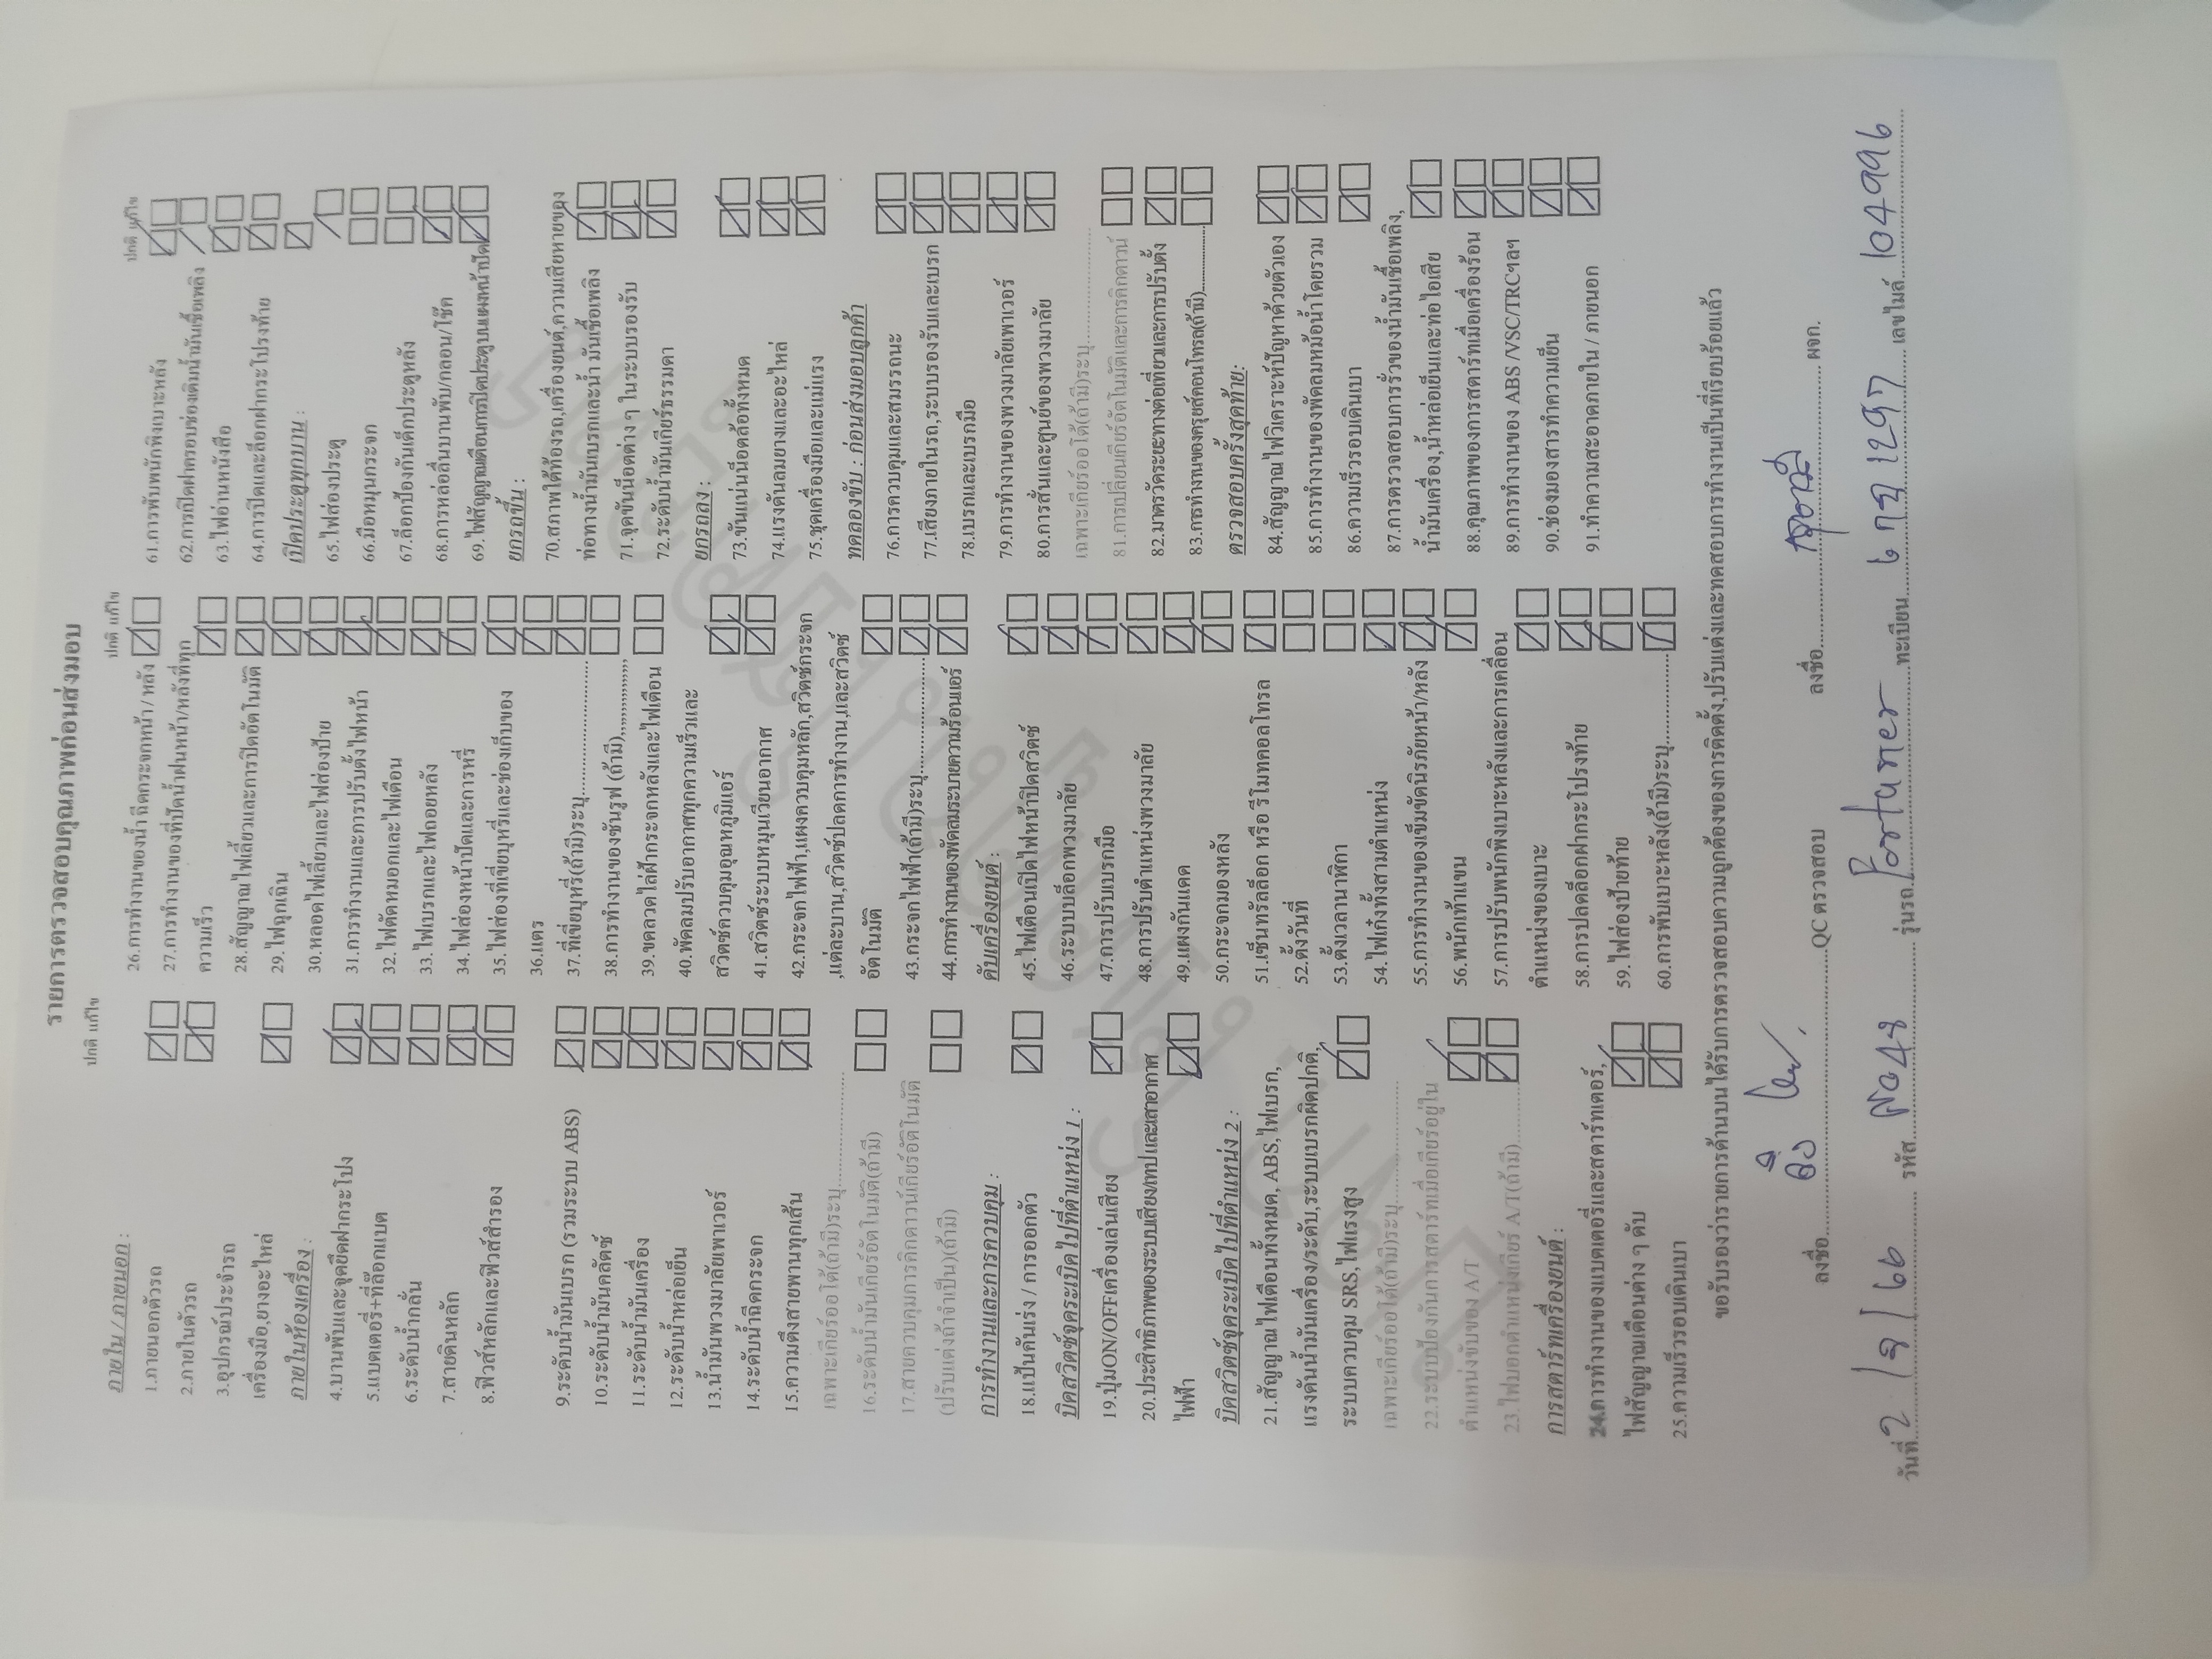 รายการตรวจสอบคุณภาพก่อนส่งมอบ
ปกติ แก้ไข
ภายใน / ภายนอก :
1.ภายนอกตัวรถ
2.ภายในตัวรถ
3.อุปกรณ์ประจำรถ
เครื่องมือ,ยางอะไหล่
ภายในห้องเครื่อง :
4.บานพับและจุดยึดฝากระโปง
5.แบตเตอรี่+ที่ล็อกแบต
6.ระดับน้ำกลั่น
7.สายดินหลัก
8.ฟิวส์หลักและฟิวส์สำรอง
9.ระดับน้ำมันเบรก (รวมระบบ ABS)
10.ระดับน้ำมันคลัตช์
11.ระดับน้ำมันเครื่อง
12.ระดับน้ำหล่อเย็น
13.น้ำมันพวงมาลัยเพาเวอร์
14.ระดับน้ำฉีดกระจก
15.ความตึงสายพานทุกเส้น
เฉพาะเกียร์ออโต้(ถ้ามี)ระบุ....................
16.ระดับน้ำมันเกียร์อัตโนมัติ(ถ้ามี)
17.สายควบคุมการคิกดาวน์เกียร์อัตโนมัติ
(ปรับแต่งถ้าจำเป็น)(ถ้ามี)
การทำงานและการควบคุม :
18.แป้นคันเร่ง / การออกตัว
บิดสวิตซ์จุดระเบิดไปที่ตำแหน่ง 1 :
19.ปุ่มON/OFFเครื่องเล่นเสียง
20.ประสิทธิภาพของระบบเสียง/เทปและเสาอากาศ
ไฟฟ้า
บิดสวิตซ์จุดระเบิดไปที่ตำแหน่ง 2 :
21.สัญญาณไฟเตือนทั้งหมด, ABS,ไฟเบรก,
แรงดันน้ำมันเครื่อง/ระดับ,ระบบเบรกผิดปกติ,
ระบบควบคุม SRS,ไฟแรงสูง
เฉพาะเกียร์ออโต้(ถ้ามี)ระบุ....................
22.ระบบป้องกันการสตาร์ทเมื่อเกียร์อยู่ใน
ตำแหน่งขับของ A/T
23.ไฟบอกตำแหน่งเกียร์ A/T(ถ้ามี)..........
การสตาร์ทเครื่องยนต์ :
24.การทำงานของแบตเตอรี่และสตาร์ทเตอร์,
ไฟสัญญาณเตือนต่าง ๆ ดับ
25.ความเร็วรอบเดินเบา
ปกติ แก้ไข
26.การทำงานของน้ำฉีดกระจกหน้า / หลัง
27.การทำงานของที่ปัดน้ำฝนหน้า/หลังที่ทุก
ความเร็ว
28.สัญญาณไฟเลี้ยวและการปิดอัตโนมัติ
29.ไฟฉุกเฉิน
30.หลอดไฟเลี้ยวและไฟส่องป้าย
31.การทำงานและการปรับตั้งไฟหน้า
32.ไฟตัดหมอกและไฟเตือน
33.ไฟเบรกและไฟถอยหลัง
34.ไฟส่องหน้าปัดและการหรี่
35.ไฟส่องที่เขี่ยบุหรี่และช่องเก็บของ
36.แตร
37.ที่เขี่ยบุหรี่(ถ้ามี)ระบุ....................
38.การทำงานของซันรูฟ (ถ้ามี),,,,,,,,,,,,,,,
39.ขดลวดไล่ฝ้ากระจกหลังและไฟเตือน
40.พัดลมปรับอากาศทุกความเร็วและ
สวิตซ์ควบคุมอุณหภูมิแอร์
41.สวิตซ์ระบบหมุนเวียนอากาศ
42.กระจกไฟฟ้า,แผงควบคุมหลัก,สวิตซ์กระจก
,แต่ละบาน,สวิตซ์ปลดการทำงาน,และสวิตซ์
อัตโนมัติ
43.กระจกไฟฟ้า(ถ้ามี)ระบุ....................
44.การทำงานของพัดลมระบายความร้อนแอร์
ดับเครื่องยนต์ :
45.ไฟเตือนเปิดไฟหน้าปิดสวิตซ์
46.ระบบบล็อกพวงมาลัย
47.การปรับเบรกมือ
48.การปรับตำแหน่งพวงมาลัย
49.แผงกันแดด
50.กระจกมองหลัง
51.เซ็นทรัลล็อก หรือ รีโมทคอลโทรล
52.ตั้งวันที่
53.ตั้งเวลานาฬิกา
54.ไฟเก๋งทั้งสามตำแหน่ง
55.การทำงานของเข็มขัดนิรภัยหน้า/หลัง
56.พนักเท้าแขน
57.การปรับพนักพิงเบาะหลังและการเคลื่อน
ตำแหน่งของเบาะ
58.การปลดล็อกฝากระโปรงท้าย
59.ไฟส่องป้ายท้าย
60.การพับเบาะหลัง(ถ้ามี)ระบุ....................
ปกติ แก้ไข
61.การพับพนักพิงเบาะหลัง
62.การเปิดฝาครอบช่องเติมน้ำมันเชื้อเพลิง
63.ไฟอ่านหนังสือ
64.การปิดและล็อกฝากระโปรงท้าย
เปิดประตูทุกบาน :
65.ไฟส่องประตู
66.มือหมุนกระจก
67.ล็อกป้องกันเด็กประตูหลัง
68.การหล่อลื่นบานพับ/กลอน/โช๊ค
69.ไฟสัญญาณเตือนการปิดประตูบนแผงหน้าปัด
ยกรถขึ้น :
70.สภาพใต้ท้องรถ,เครื่องยนต์,ความเสียหายของ
ท่อทางน้ำมันเบรกและน้ำ มันเชื้อเพลิง
71.จุดขันน๊อตต่าง ๆ ในระบบรองรับ
72.ระดับน้ำมันเกียร์ธรรมดา
ยกรถลง :
73.ขันแน่นน๊อตล้อทั้งหมด
74.แรงดันลมยางและอะไหล่
75.ชุดเครื่องมือและแม่แรง
ทดลองขับ : ก่อนส่งมอบลูกค้า
76.การควบคุมและสมรรถนะ
77.เสียงภายในรถ,ระบบรองรับและเบรก
78.เบรกและเบรกมือ
79.การทำงานของพวงมาลัยเพาเวอร์
80.การสั่นและศูนย์ของพวงมาลัย
เฉพาะเกียร์ออโต้(ถ้ามี)ระบุ....................
81.การเปลี่ยนเกียร์อัตโนมัติและการคิกดาวน์
82.มาตรวัดระยะทางต่อเที่ยวและการปรับตั้ง
83.การทำงานของครูยส์คอนโทรล(ถ้ามี)..........
ตรวจสอบครั้งสุดท้าย:
84.สัญญาณไฟวิเคราะห์ปัญหาด้วยตัวเอง
85.การทำงานของพัดลมหม้อน้ำโดยรวม
86.ความเร็วรอบเดินเบา
87.การตรวจสอบการรั่วของน้ำมันเชื้อเพลิง,
น้ำมันเครื่อง,น้ำหล่อเย็นและท่อไอเสีย
88.คุณภาพของการสตาร์ทเมื่อเครื่องร้อน
89.การทำงานของ ABS /VSC/TRCฯลฯ
90.ช่องมองสารทำความเย็น
91.ทำความสะอาดภายใน / ภายนอก
ขอรับรองว่ารายการด้านบนได้รับการตรวจสอบความถูกต้องของการติดตั้ง,ปรับแต่งและทดสอบการทำงานเป็นที่เรียบร้อยแล้ว
ลงชื่อ....................QC ตรวจสอบ ลงชื่อ.................... ผจก.
วันที่ 2 / 8 / 66 รหัส รุ่นรถ ทะเบียน 6 กฎ 1297 เลขไมล์ 104996